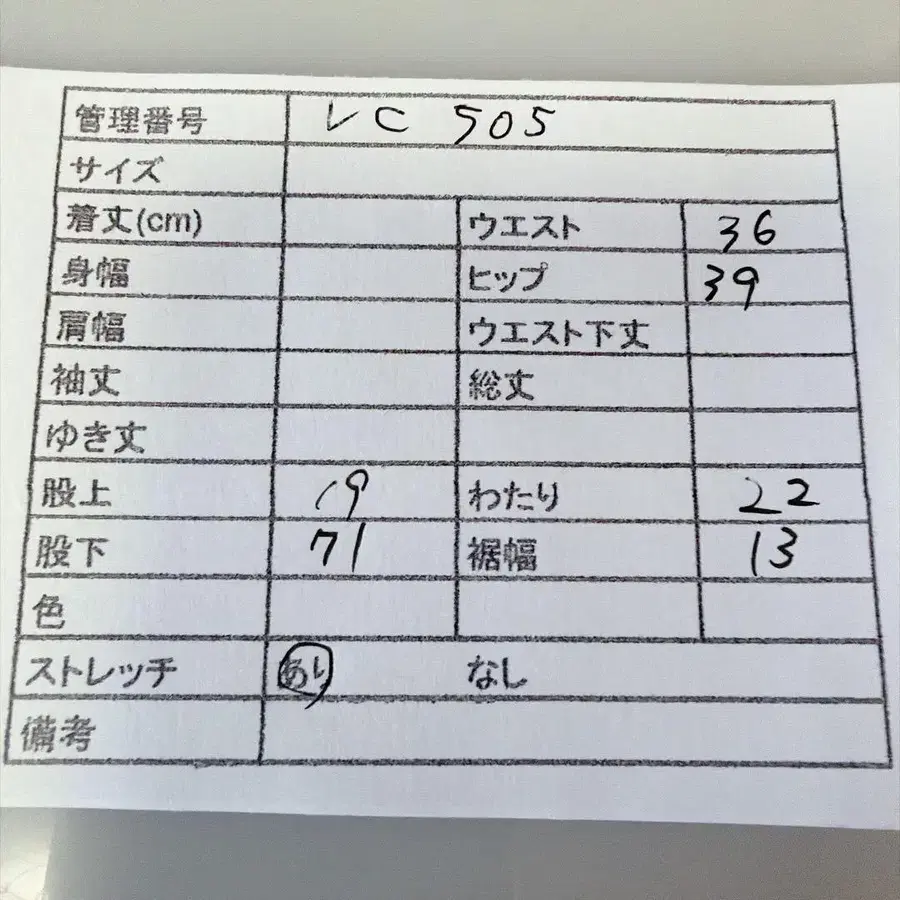 管理番号 VC 505
サイズ
着丈(cm) ウエスト 36
身幅 ヒップ 39
肩幅 ウエスト下丈
袖丈 総丈
ゆき丈
股上 19 わたり 22
股下 71 裾幅 13
色
ストレッチ あり なし
備考